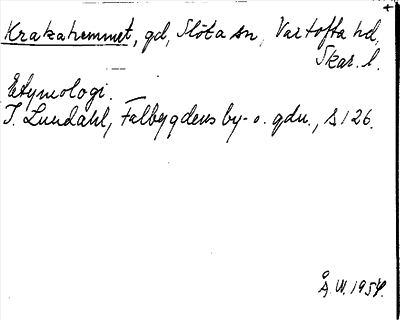 Krakahemmet, gd, Slöta sn, Vartofta hd,
Skar. l.
Etymologi.
I. Lundahl, Falbygdens by- o. gdn., s 126.
Å. W. 1954.